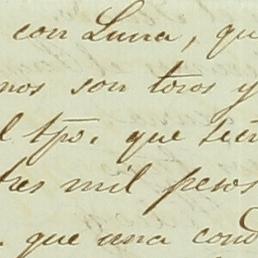 con Luna, qu
nos son toros y
l tpo. que tien
tres mil pesos
que una cond